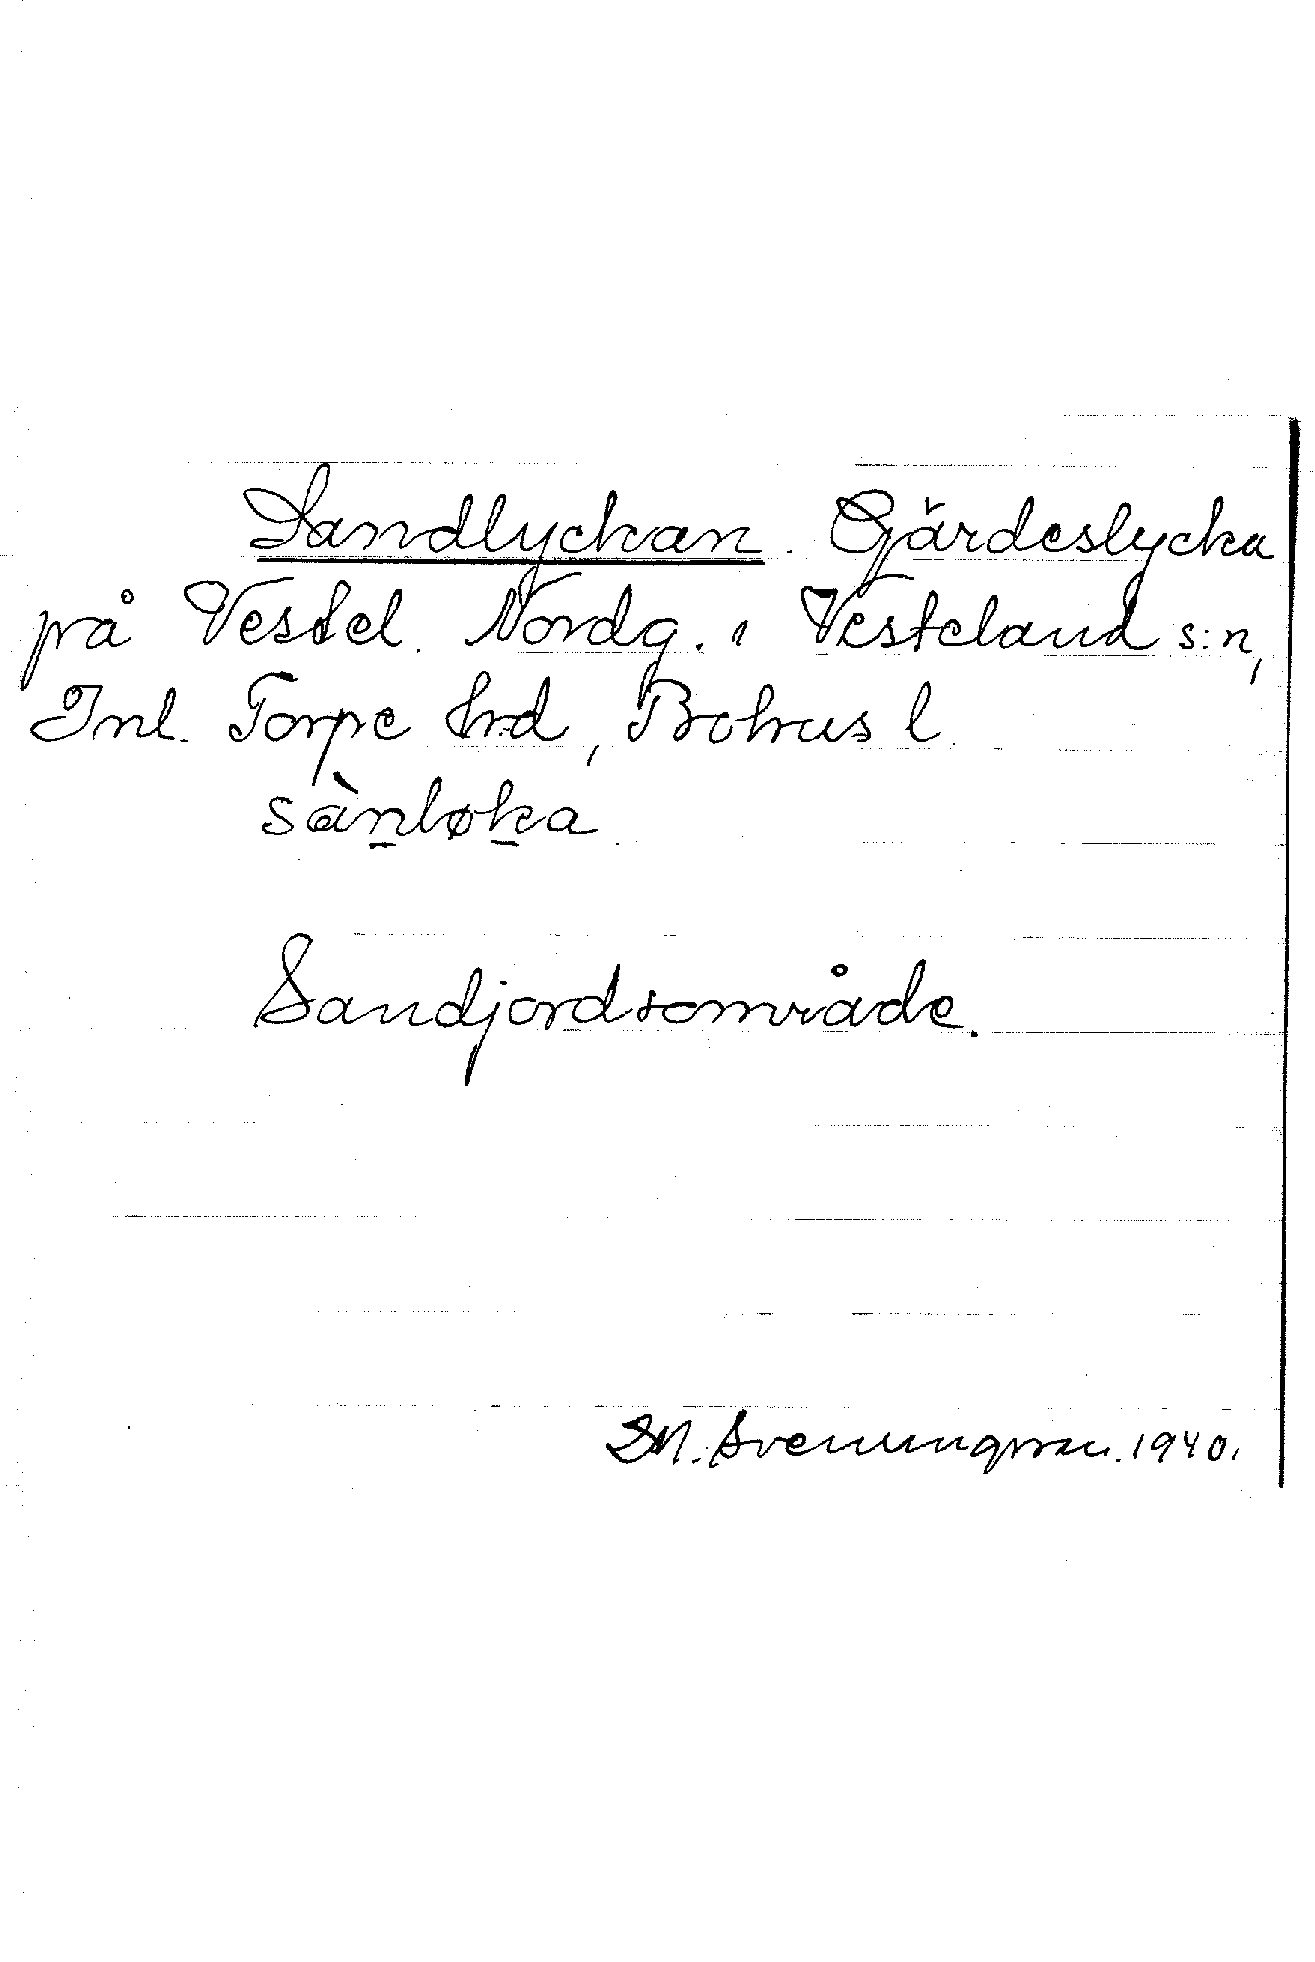 Sandlyckan. Gärdeslycka
på Vestel. Nordg. i Vesteland s:n,
Inl. Torpe hrd, Bohus l.
sàn̲løk̲a
Sandjordsområde.
D.M. Svenungsson. 1940.